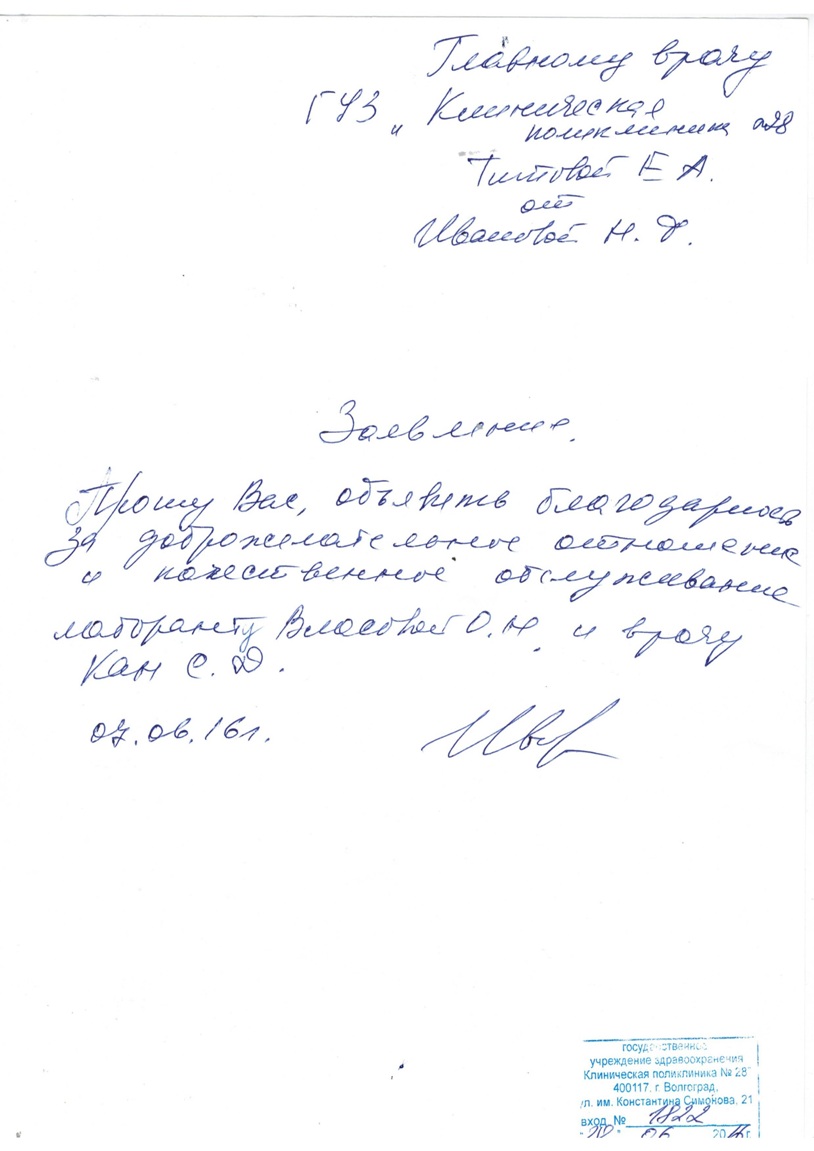 Главному врачу
ГУЗ „ Клиническая
поликлиника №28
Титовой Е А.
от
Ивановой Н.
Заявление.
Прошу Вас, объявить благодарность
за доброжелательное отношение
и качественное обслуживание
лаборанту Власовой О.Н. и врачу
Кан С. Д.
07.06.16г.
государственное
учреждение здравоохранения
Клиническая поликлиника № 28"
400117, г. Волгоград,
ул. им. Константина Симонова, 21
вход. № 1822
06 20 г.